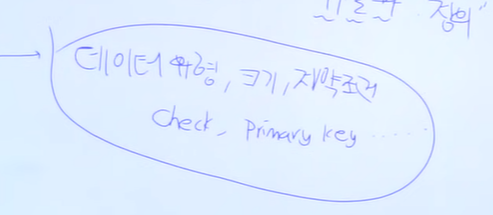 정의"
데이터 유형, 크기, 제약조건
Check, Primary key ······